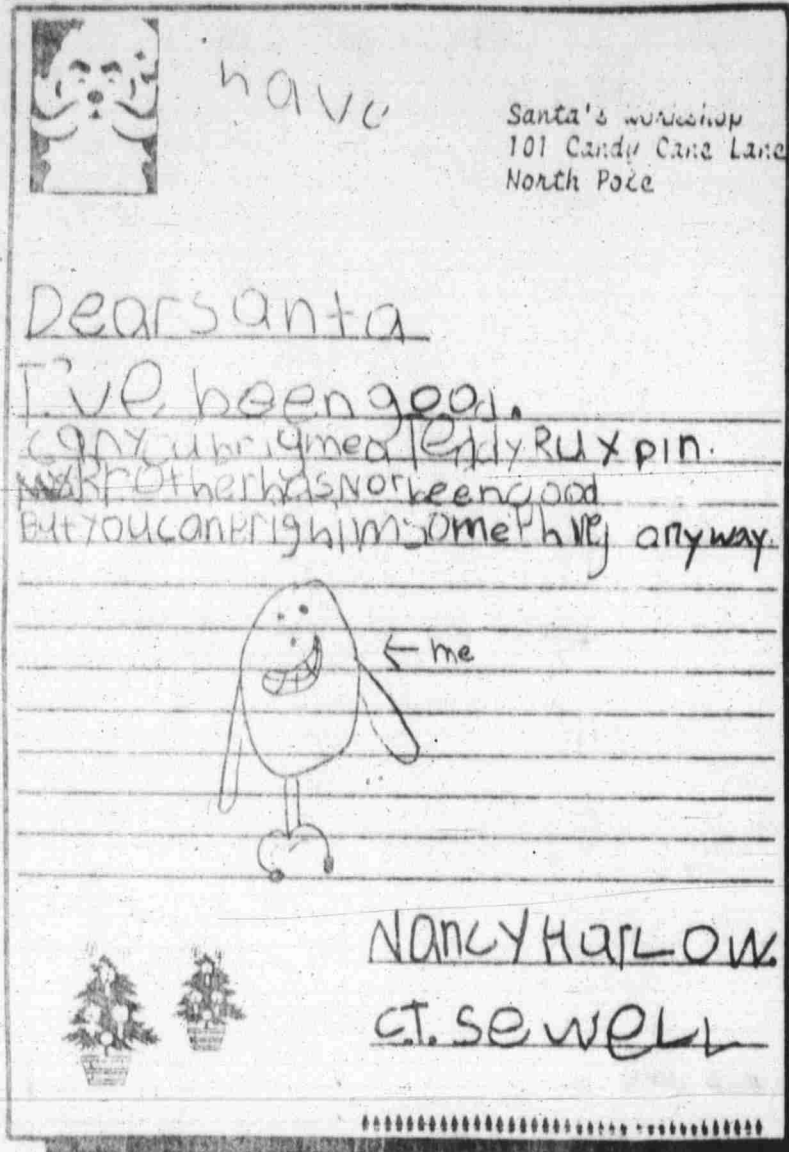 have
Santa's workshop
101 Candy Cane Lane
North Pole
Dear santa
I've been good.
can you brig me a Teddy RUXpin.
brother has Not been good
But you can brig him something anyway.
← me
Nancy HarLow.
C.T. SeweLL